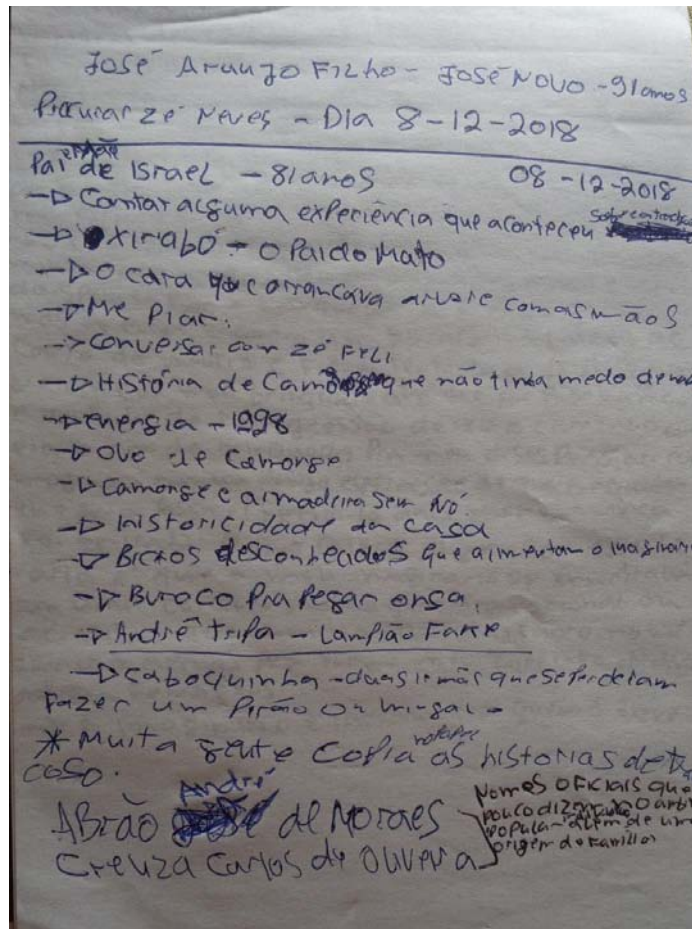 José Araujo Filho - José Novo - 91 anos
Procurar Zé Neves - Dia 8-12-2018
Pai e Mãe de Israel - 81 anos 08-12-2018
-> Contar alguma experiência que aconteceu sobre
-> Oxirabó - O Pai do Mato
-> O cara que arrancava arvore com as mãos
-> Me Piar.
-> conversar com Zé
-> História de que não tinha medo de
-> energia - 1998
-> Ovo de Camonge
-> Camonge e armadeira sem Nó
-> historicidade da casa
-> Bichos desconhecidos que alimentam o
-> Buraco Pra Pegar onsa.
-> André Tripa - Lampião
-> Caboquinha - duas irmãs que se perderam
Fazer um Pirão ou mingal -
* Muita gente copia as histórias de
caso.
André
Abrão de Moraes
Creuza Carlos de Oliveira
Nomes oficiais que
pouco dizem
popula - além de um
origem de família